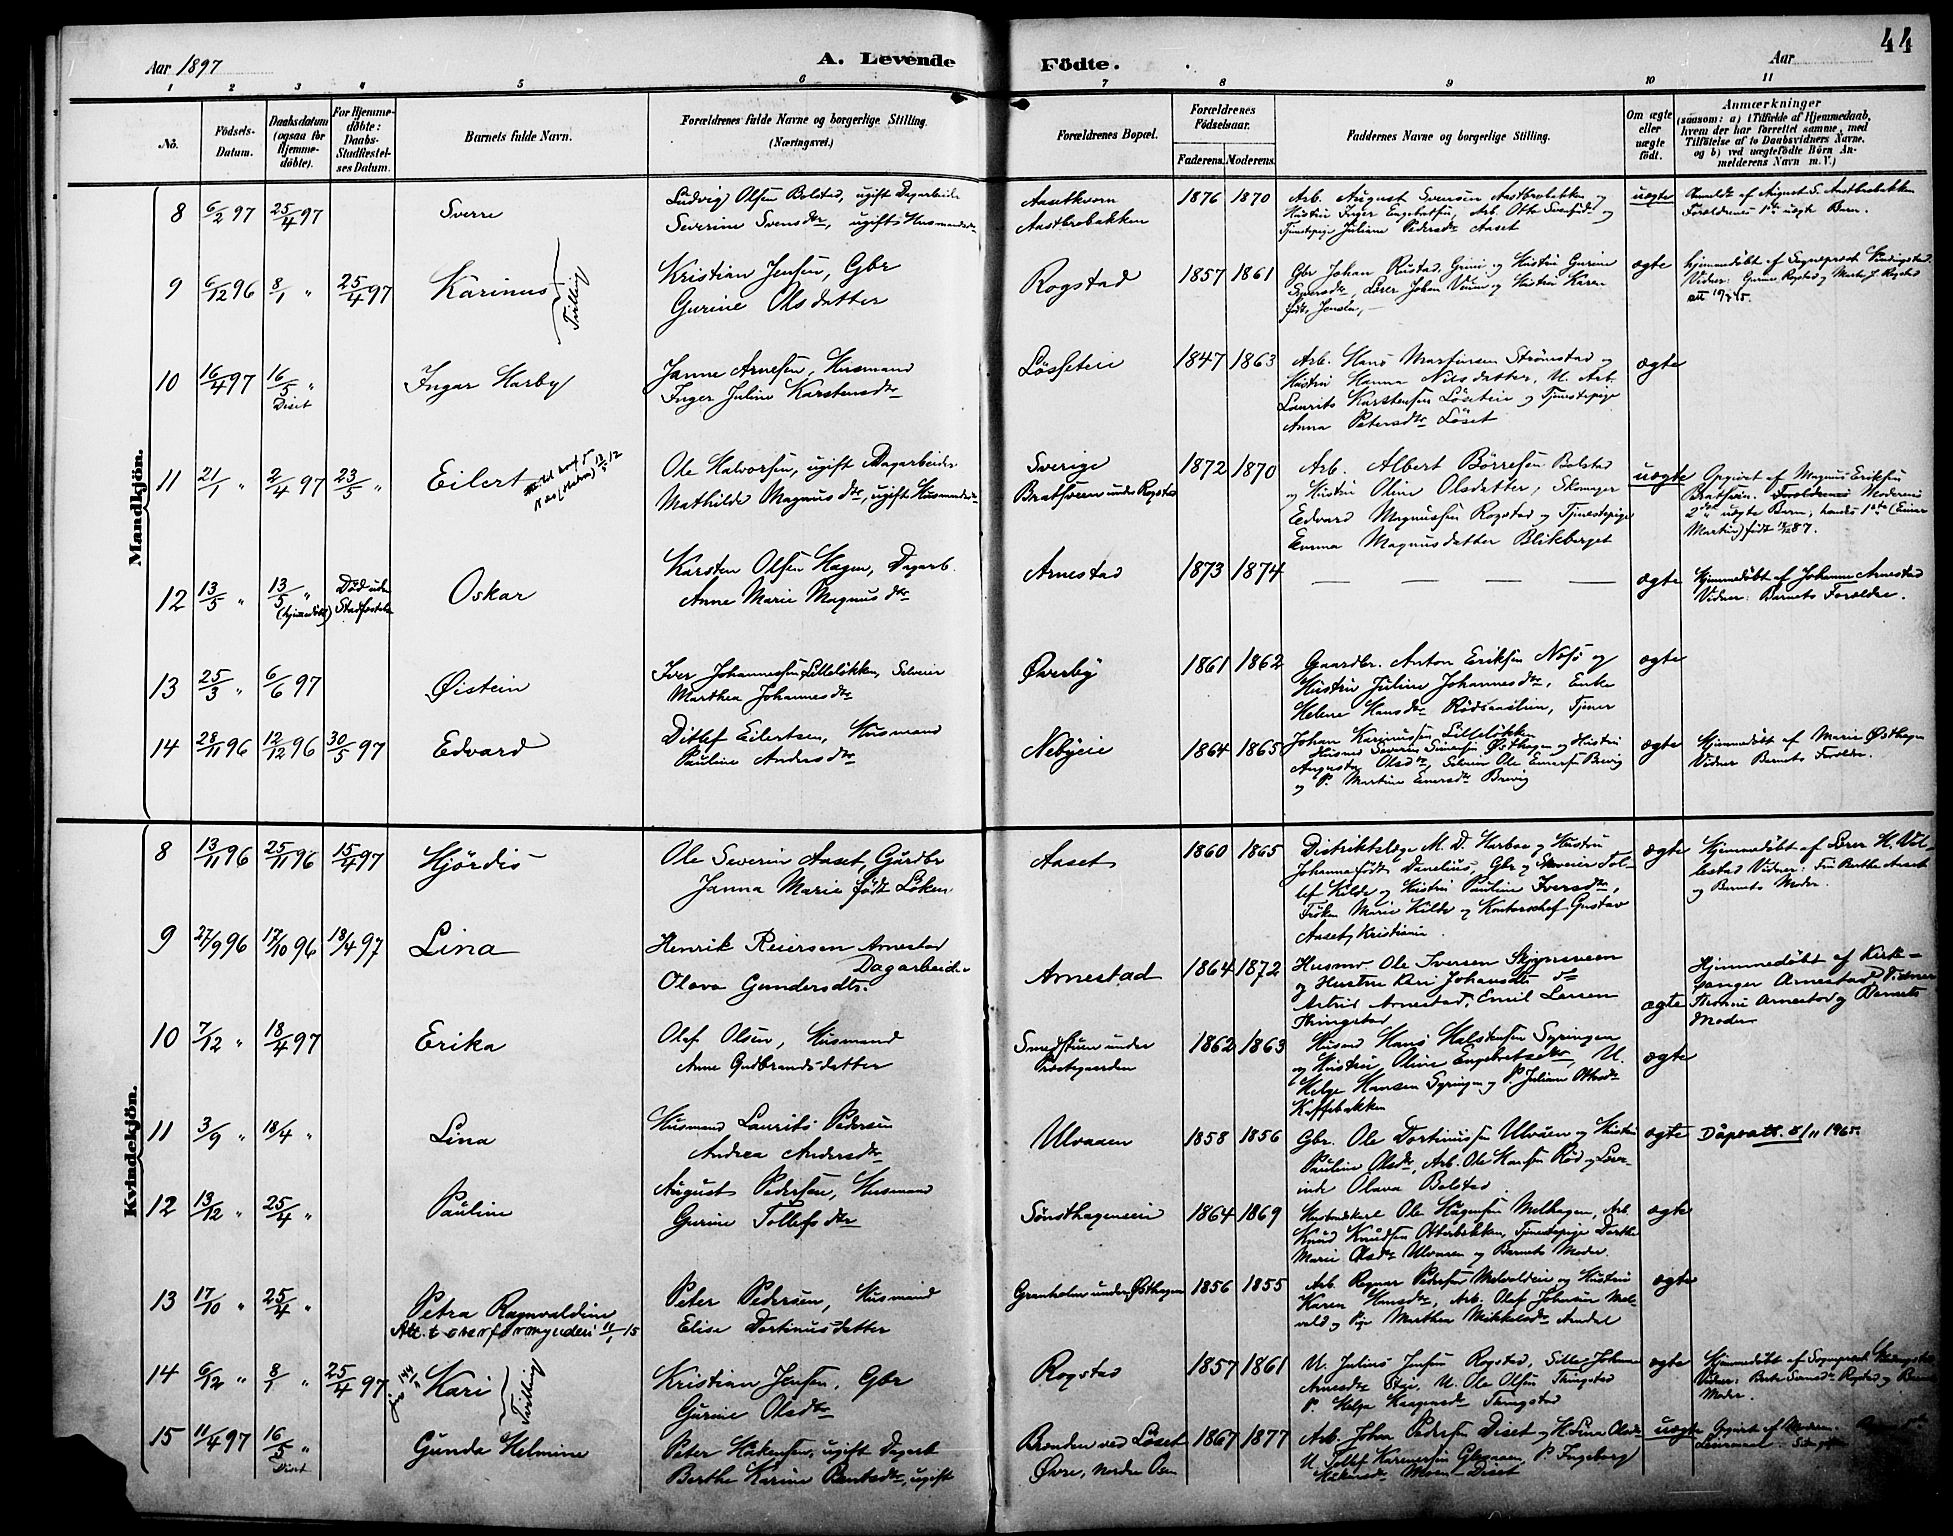 44
Aar 1897
A. Levende
Födte.
Aar
1 2 3 4 5 6 7 8 9 10 11
No.
Födsels-
Datum.
Daabsdatum
(ogsaa for
Hjemme-
döbte).
For Hjemme-
döbte:
Daabs-
Stadfæstel-
ses Datum.
Barnets fulde Navn.
Forældrenes fulde Navne og borgerlige Stilling
(Næringsvei.)
Forældrenes Bopæl.
Forældrenes
Födselsaar.
Faderens. Moderens.
Faddernes Navne og borgerlige Stilling.
Om ægte
eller
uægte
födt.
Anmærkninger
(saasom: a) i Tilfælde af Hjemmedaab,
hvem der har forrettet samme, med
Tilföielse af to Daabsvidners Navne,
og b) ved uægtefödte Börn An-
melderens Navn m. V.)
Mandkjön.
8 6/2 97 25/4 97 Sverre
Ludvig Olsen Bolstad, ugift Dagarbeider
Severine Svensdtr, ugift Husmandsdtr
Aasetkvern
Aastbrobakken
1876 1870
Arb. August Svensen Aastbrobakken og
Hustru Inger Engebretsen, Arb. Otto Svensen og
Tjenestepige Juliane Pedersdtr Aaset
uægte
Anmeldt af August S. Aastbrobakken
Forældrenes 1ste uægte Barn.
9 6/12 96 8/1 " 25/4 97 Karinus Tvilling
Kristian Jensen, Gbr
Gurine Olsdatter
Rogstad
1857 1861
Gbr Johan Rustad, Grini og Hustru Gurine
Lærer Johan Veum og Hustru Karen
født Jensen,
ægte
hjemmedöbt af Sogneprest
Vidner: Gurine Rogstad og Marte J. Rogstad
10 16/4 97 16/5 " Diset Ingar Harby
Janne Arnesen, Husmand
Inger Juline Karstensdtr
Lösseteie
1847 1863
Arb. Hans Martinsen Strömstad og
Hustru Hanna Nilsdatter, U. Arb.
Laurits Karstensen Löseteie og Tjenestepige
Anna Petersdtr Löset
ægte
11 21/1 " 2/4 97 23/5 " Eilert
Ole Halvorsen, ugift Dagarbeider
Mathilde Magnusdtr, ugift Husmandsdtr
Sverige
Bratsveen under Rogstad
1872 1870
Arb. Albert Börresen Bolstad
og Hustru Oline Olsdatter, Skomager
Edvard Magnussen Rogstad og Tjenestepige
Emma Magnusdatter Blikberget
uægte
Opgivet af Magnus Eriksen
Bratsveen. Forældrenes Moderens
2det uægte Barn, hendes 1ste (Einar
Martin) født 87.
12 13/5 " 13/5 " (hjemmedöbt) Död uden Stadfæstelse Oskar
Karsten Olsen Hagen, Dagarb.
Anne Marie Magnusdtr
Arnestad
1873 1874
— — — —
ægte
Hjemmedöbt af Johanne Arnestad
Vidner: Barnets Forældre.
13 25/3 " 6/6 97 Øistein
Iver Johannessen Lillelökken, Selveier
Marthea Johannesdtr
Øverby
1861 1862
Gaardbr. Anton Eriksen Næsö og
Hustru Juline Johannesdtr, Enke
Helene Hansdtr Rödsaasveen, Tjener
Johan Karinussen Lillelökken
ægte
14 28/11 96 12/12 96 30/5 97 Edvard
Ditlef Eilertsen, Husmand
Pauline Andersdtr
Nebyeie
1864 1865
Husmd Severin Simensen Østhagen og Hustru
Augusta Olsdtr, Selveier Ole Einersen Brevig
og P. Martine Einersdtr Brevig
ægte
Hjemmedöbt af Marie Østhagen
Vidner Barnets Forældre.
Kvindekjön.
8 13/11 96 25/11 96 15/4 97 Hjördis
Ole Severin Aaset, Gårdbr
Janna Marie født Löken
Aaset
1860 1865
Distriktslæge M. D. Harboe og Hustru
Johanne født Danelius, Gbr og Skoveier Tol-
lef Kilde og Hustru Pauline Iversdtr,
Fröken Marie Kilde og Kontorchef Gustav
Aaset, Kristiania.
ægte
Hjemmedöbt af Lærer H. Vol-
lestad Vidner: Fru Berthe Aaset
og Barnets Moder.
9 27/9 96 17/10 96 18/4 97 Lina
Henrik Reiersen Arnestad
Dagarbeider
Olava Gundersdtr.
Arnestad
1864 1872
Husmd Ole Iversen Skjynsveen
og Hustru Kari Johansdtr
Astrid Arnestad, Emil Larsen
Thingstad
ægte
Hjemmedöbt af Kirke-
sanger Arnestad, Vidner
Thomine Arnestad og Barnets
Moder
10 7/12 " 18/4 97 Erika
Olaf Olsen, Husmand
Anne Gudbrandsdatter
Smedstuen under
Præstegaarden
1862 1863
Husmd Hans Halstensen Syringen
og Hustru Oline Engebretsdtr, U.
Helge Hansen Syringen og P. Juliane Ottosdtr
Kaffebakken
ægte
11 3/9 " 18/4 " Lina
Husmand Laurits Pedersen
Andrea Andersdtr
Ulvaaen
1858 1856
Gbr. Ole Dortinussen Ulvåen og Hustru
Pauline Olsdtr, Arb. Ole Hansen Röd og Lærer-
inde Olava Bolstad
ægte
Dåpsatt. 8/11 1965.
12 13/12 " 25/4 " Pauline
August Pedersen, Husmand
Gurine Tollefsdtr
Sönsthageneie
1864 1869
Husbondskarl Ole Hågensen Melhagen, Arb.
Knud Knudsen Otterbækken, Tjenestepige Dorthe
Marie Olsdtr Ulvaaen og Barnets Moder.
ægte
13 17/10 " 25/4 " Petra Ragnvaldine
Att. t overformynderi 11/1 15
Peter Pedersen, Husmand
Elise Dortinusdatter
Granholm under Østhagen
1856 1855
Arb. Regner Pedersen og Hustru
Karen Hansdtr, Arb. Olaf Johnsen Mel-
vold og Pige Marthea Mikkelsdtr
ægte
14 6/12 " 8/1 " 25/4 97 Kari Tvilling
Kristian Jensen, Gbr
Gurine Olsdtr
Rogstad
1857 1861
U. Julius Jensen Rogstad, Johanne
Arnesdtr Stai, U. Ole Olsen Thingstad
P. Helga Haagensdtr Thingstad
ægte
Hjemmedöbt af Sogneprest
Vidner: Berte Rogstad og Barnets
Moder.
15 11/4 97 16/5 " Diset Gunda Helmine
Peter Håkensen, ugift Dagarb.
Berthe Karine Berntsdtr, ugift
Brænden ved Löset
Øvre, Nordre Osen
1867 1877
Arb. Johan Pedersen Diset og H. Lina Olsdtr
U. Tollef Karinersen P. Ingeborg
Håkensdtr Moen — Diset
uægte
Opgivet af Moderen.